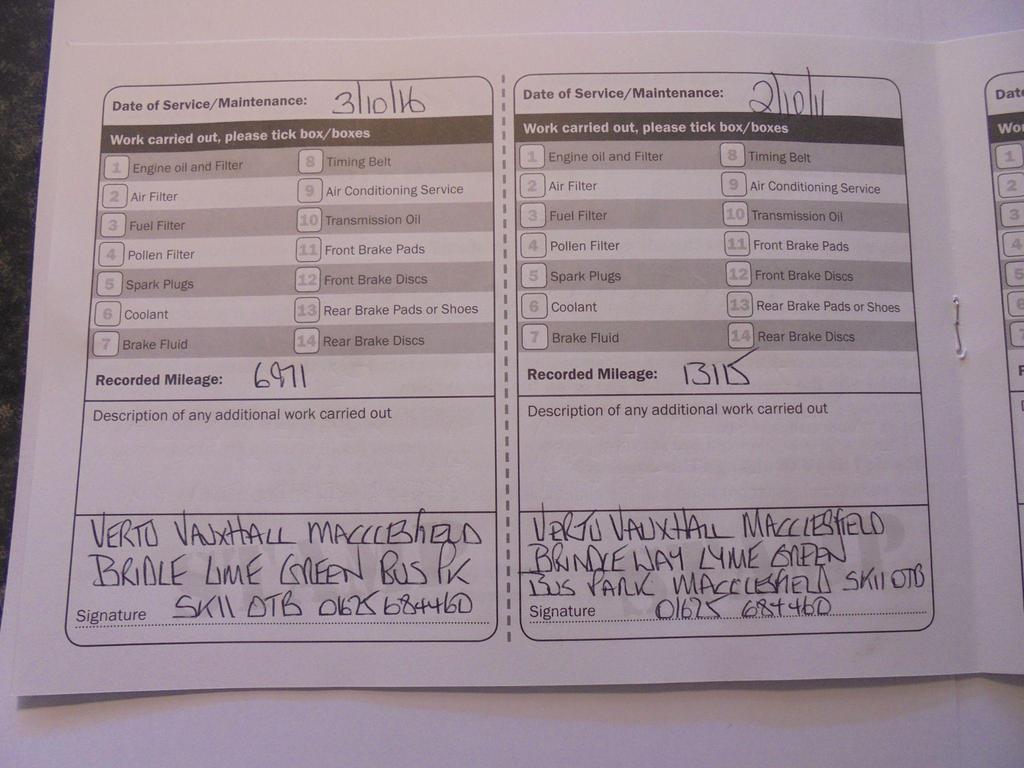 Date of Service/Maintenance: 3/10/16
Work carried out, please tick box/boxes
1 Engine oil and Filter 8 Timing Belt
2 Air Filter 9 Air Conditioning Service
3 Fuel Filter 10 Transmission Oil
4 Pollen Filter 11 Front Brake Pads
5 Spark Plugs 12 Front Brake Discs
6 Coolant 13 Rear Brake Pads or Shoes
7 Brake Fluid 14 Rear Brake Discs
Recorded Mileage: 6971
Description of any additional work carried out
VERTU VAUXHALL MACCLESFIELD
BRIDLE LIME GREEN BUS PK
Signature SK11 0TB 01625 684460
Date of Service/Maintenance: 2/10/11
Work carried out, please tick box/boxes
1 Engine oil and Filter 8 Timing Belt
2 Air Filter 9 Air Conditioning Service
3 Fuel Filter 10 Transmission Oil
4 Pollen Filter 11 Front Brake Pads
5 Spark Plugs 12 Front Brake Discs
6 Coolant 13 Rear Brake Pads or Shoes
7 Brake Fluid 14 Rear Brake Discs
Recorded Mileage: 13115
Description of any additional work carried out
VERTU VAUXHALL MACCLESFIELD
BRINDLE WAY LYME GREEN
BUS PARK MACCLESFIELD SK11 0TB
Signature 01625 684460
Date
Wo
1
2
3
4
5
6
7